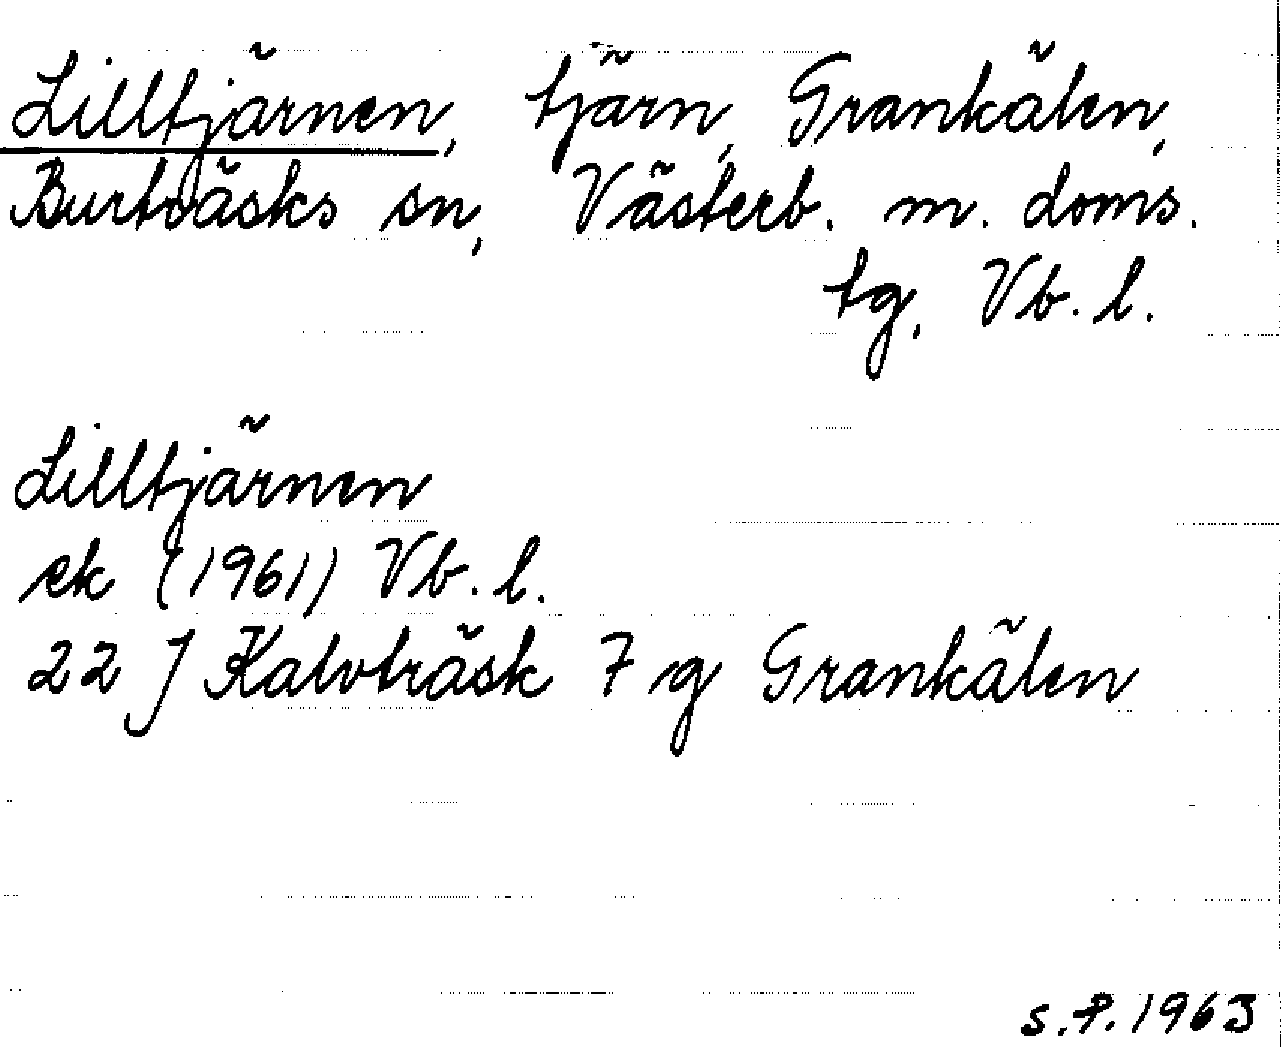 Lilltjärnen, tjärn, Grankälen,
Burträsks sn, Västerb. m. doms.
tg, Vb. l.
Lilltjärnen
ek (1961) Vb. l.
22 J Kalvträsk 7 g Grankälen
s.P. 1963